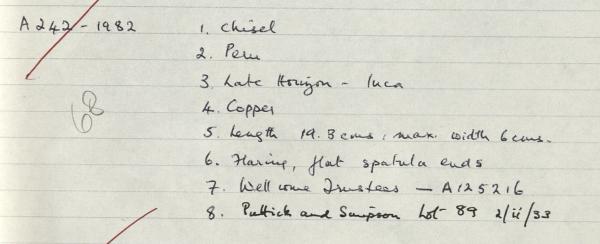 A242-1982 1. Chisel
2. Peru
3. Late Horizon - Inca
4. Copper
5. Length 19.3 cms, max. width 6 cms.
6. Flaring, flat spatula ends
7. Wellcome Trustees — A125216
68
8. Puttick and Simpson Lot 89 2/ii/33